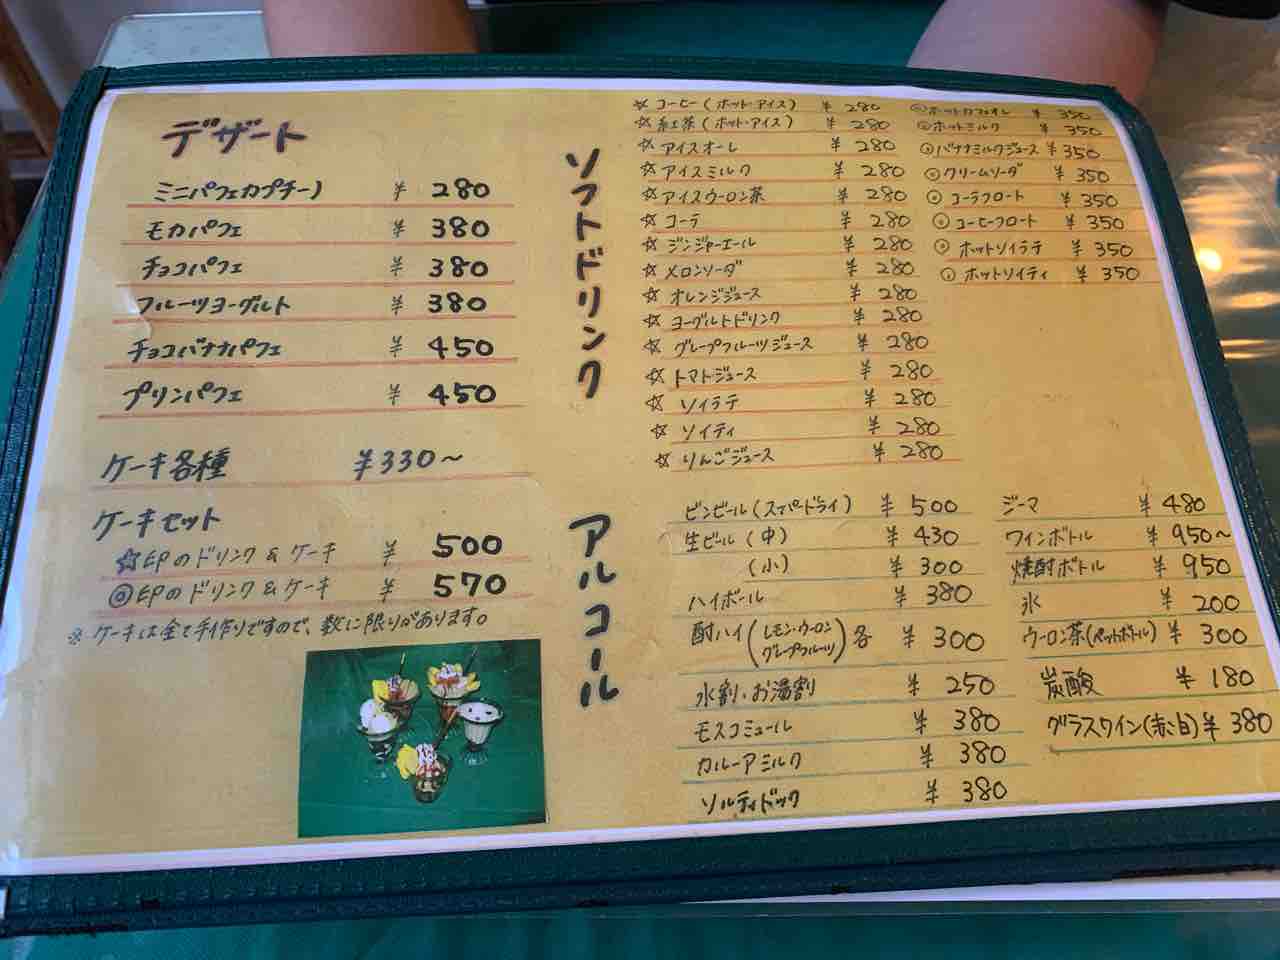 デザート
ミニパフェカプチーノ ¥ 280
モカパフェ ¥ 380
チョコパフェ ¥ 380
フルーツヨーグルト ¥ 380
チョコバナナパフェ ¥ 450
プリンパフェ ¥ 450
ケーキ各種 ¥330～
ケーキセット
☆印のドリンク&ケーキ ¥ 500
◎印のドリンク&ケーキ ¥ 570
※ケーキは全て手作りですので、数に限りがあります。
ソフトドリンク
☆ コーヒー(ホット・アイス) ¥ 280
☆ 紅茶(ホット・アイス) ¥ 280
☆ アイスオーレ ¥ 280
☆ アイスミルク ¥ 280
☆ アイスウーロン茶 ¥ 280
☆ コーラ ¥ 280
☆ ジンジャーエール ¥ 280
☆ メロンソーダ ¥ 280
☆ オレンジジュース ¥ 280
☆ ヨーグルトドリンク ¥ 280
☆ グレープフルーツジュース ¥ 280
☆ トマトジュース ¥ 280
☆ ソイラテ ¥ 280
☆ ソイティ ¥ 280
☆ りんごジュース ¥ 280
◎ホットカフェオレ ¥ 350
◎ホットミルク ¥ 350
◎バナナミルクジュース ¥350
◎クリームソーダ ¥ 350
◎ コーラフロート ¥ 350
◎ コーヒーフロート ¥ 350
◎ ホットソイラテ ¥ 350
◎ ホットソイティ ¥ 350
アルコール
ビンビール(スーパードライ) ¥ 500
生ビール(中) ¥ 430
(小) ¥ 300
ハイボール ¥ 380
酎ハイ(レモン・ウーロン グレープフルーツ)各 ¥ 300
水割・お湯割 ¥ 250
モスコミュール ¥ 380
カルーアミルク ¥ 380
ソルティドック ¥ 380
ジーマ ¥ 480
ワインボトル ¥ 950～
焼酎ボトル ¥ 950
氷 ¥ 200
ウーロン茶(ペットボトル) ¥ 300
炭酸 ¥ 180
グラスワイン(赤、白) ¥ 380